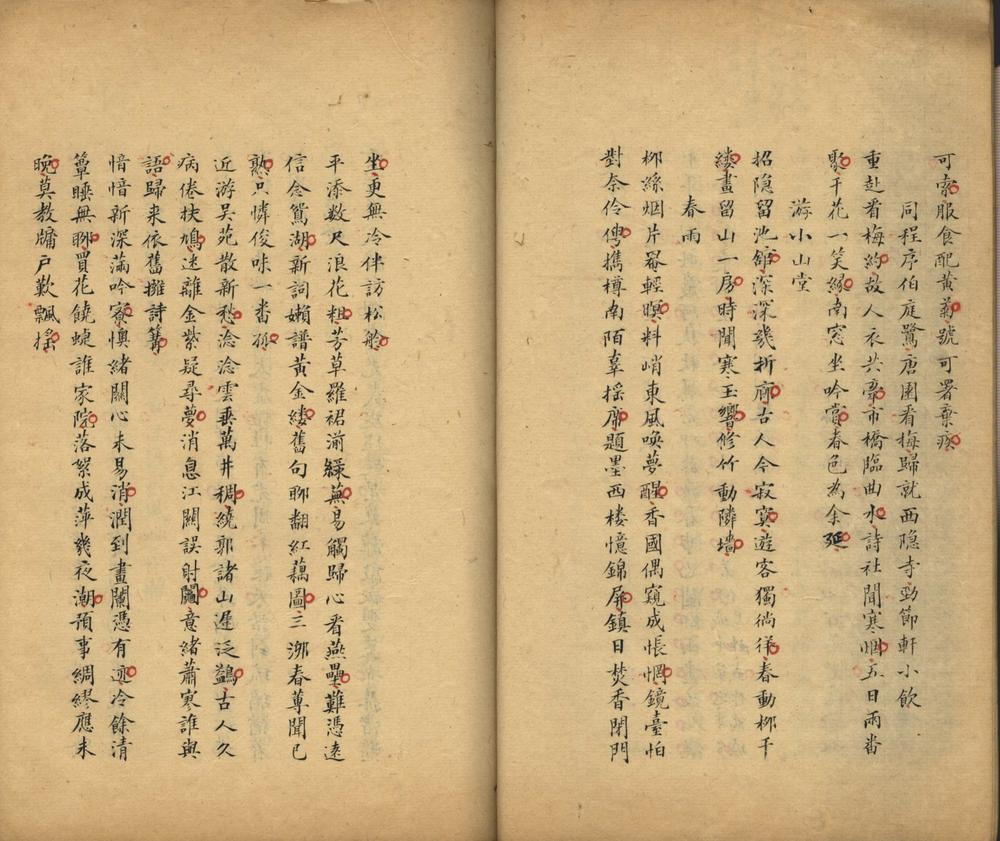 可索服食配黃菊號可署棄疾
同程序伯庭鷺唐園看梅歸就西隐寺勁節軒小飲
重赴看梅約故人衣共褰市橋臨曲水詩社聞寒烟五日兩番
聚千花一笑緣南窓坐吟賞春色為余延
游小山堂
招隐留池館深深幾折廊古人今寂寞遊客獨徜徉春動柳千
縷畫留山一房時聞寒玉響修竹動隣墻
春雨
柳絲烟片罨輕暝料峭東風喚夢醒香國偶窺成悵惘鏡臺怕
對奈伶俜擕樽南陌辜揺席題墨西楼憶錦屏鎮日焚香閉門
坐更無冷伴訪松舲
平添数尺浪花粗芳草羅裙湔綠蕪易觸歸心看燕壘難憑遠
信念鴛湖新詞嬾譜黃金縷舊句聊翻紅藕圖三泖春蓴聞已
熟只憐俊味一番孤
近游吳苑散新愁淰淰雲垂萬井稠繞郭諸山遲泛鷁古人久
病倦扶鳩迷離金紫疑尋夢消息江關誤射鬮意緒蕭寒誰與
語歸来依舊擁詩篝
愔愔新深滿吟寮懊緒關心未易消潤到畫闌憑有迹冷餘清
簟睡無聊買花饒蜨誰家院落絮成萍幾夜潮預事綢繆應未
晚莫教牖户歎飄揺